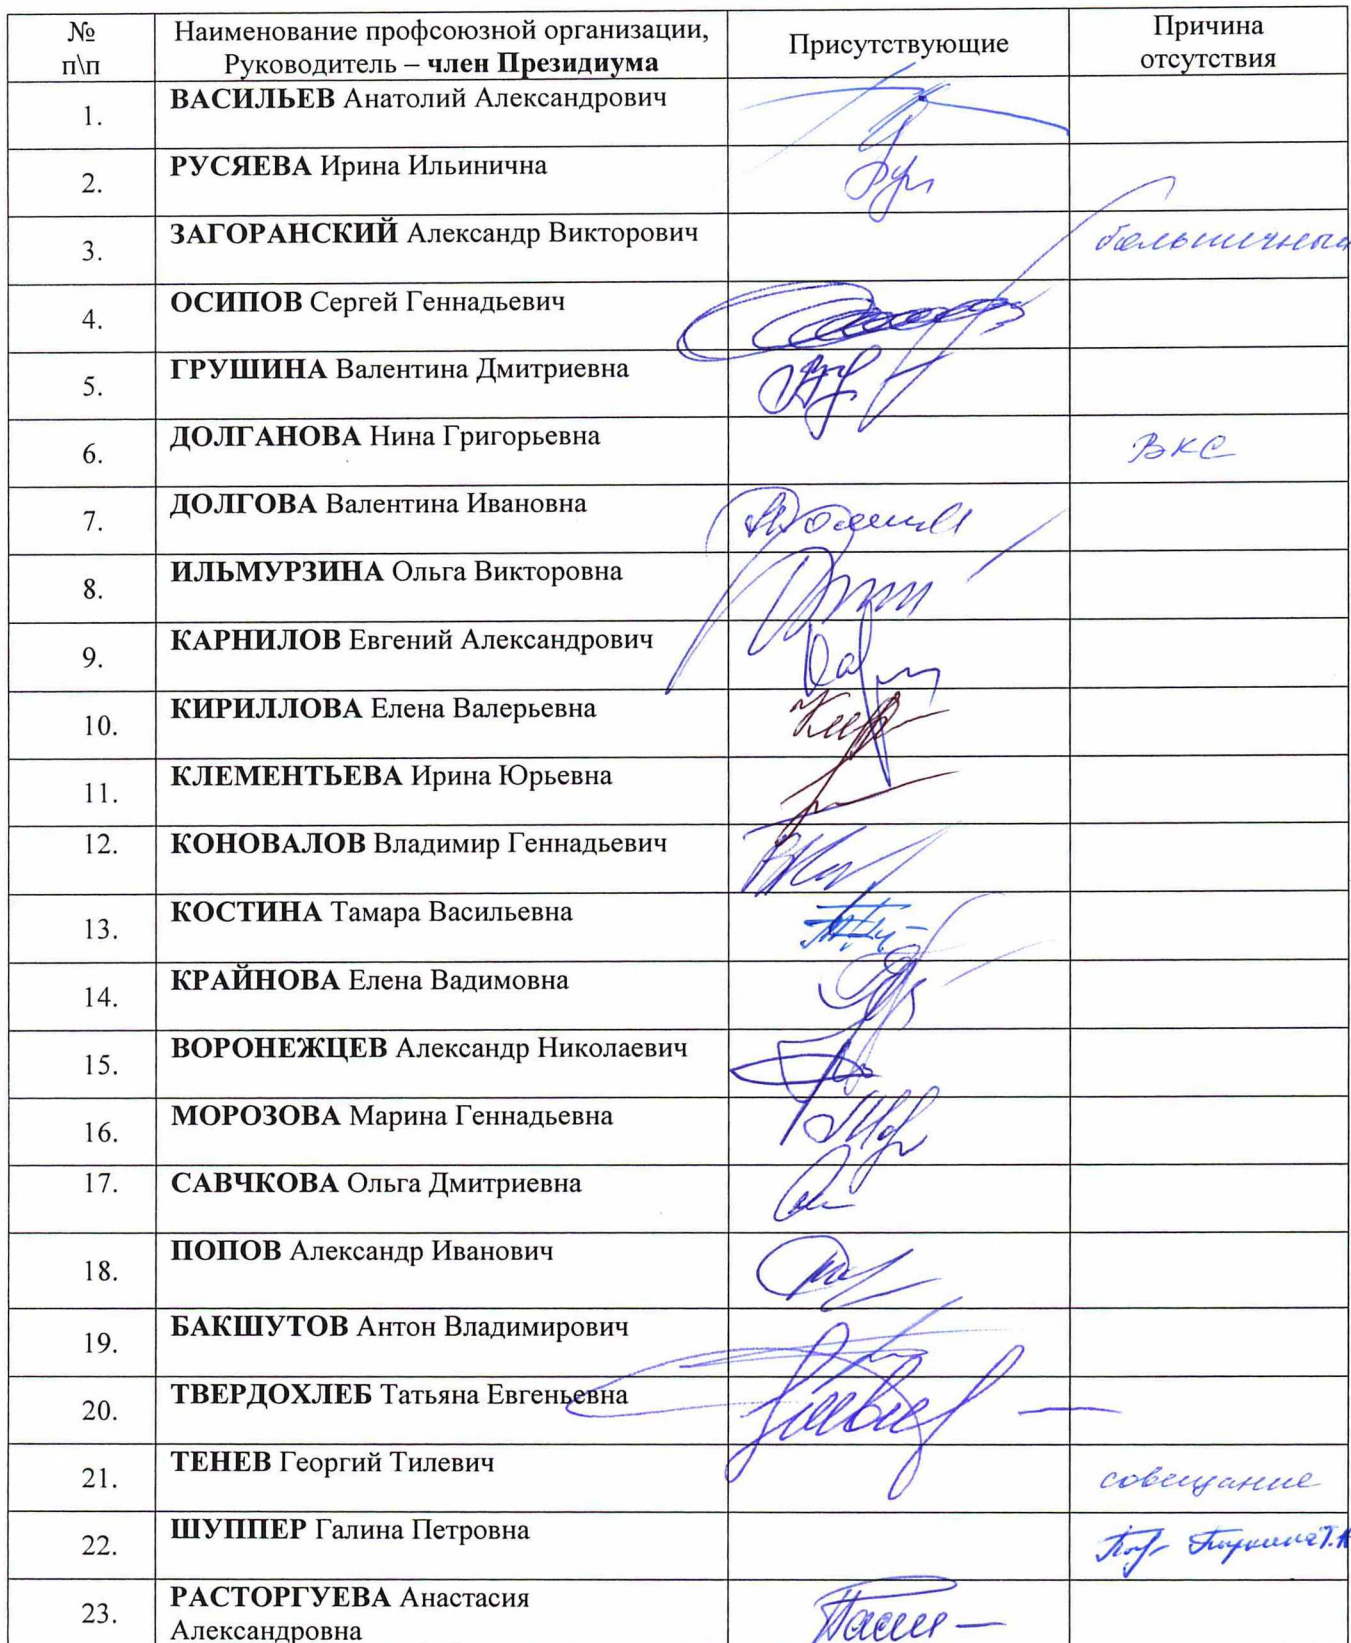 № п\п Наименование профсоюзной организации, Руководитель – член Президиума Присутствующие Причина отсутствия
1. ВАСИЛЬЕВ Анатолий Александрович
2. РУСЯЕВА Ирина Ильинична
3. ЗАГОРАНСКИЙ Александр Викторович больничный
4. ОСИПОВ Сергей Геннадьевич
5. ГРУШИНА Валентина Дмитриевна
6. ДОЛГАНОВА Нина Григорьевна ВКС
7. ДОЛГОВА Валентина Ивановна
8. ИЛЬМУРЗИНА Ольга Викторовна
9. КАРНИЛОВ Евгений Александрович
10. КИРИЛЛОВА Елена Валерьевна
11. КЛЕМЕНТЬЕВА Ирина Юрьевна
12. КОНОВАЛОВ Владимир Геннадьевич
13. КОСТИНА Тамара Васильевна
14. КРАЙНОВА Елена Вадимовна
15. ВОРОНЕЖЦЕВ Александр Николаевич
16. МОРОЗОВА Марина Геннадьевна
17. САВЧКОВА Ольга Дмитриевна
18. ПОПОВ Александр Иванович
19. БАКШУТОВ Антон Владимирович
20. ТВЕРДОХЛЕБ Татьяна Евгеньевна
21. ТЕНЕВ Георгий Тилевич совещание
22. ШУППЕР Галина Петровна
23. РАСТОРГУЕВА Анастасия
Александровна